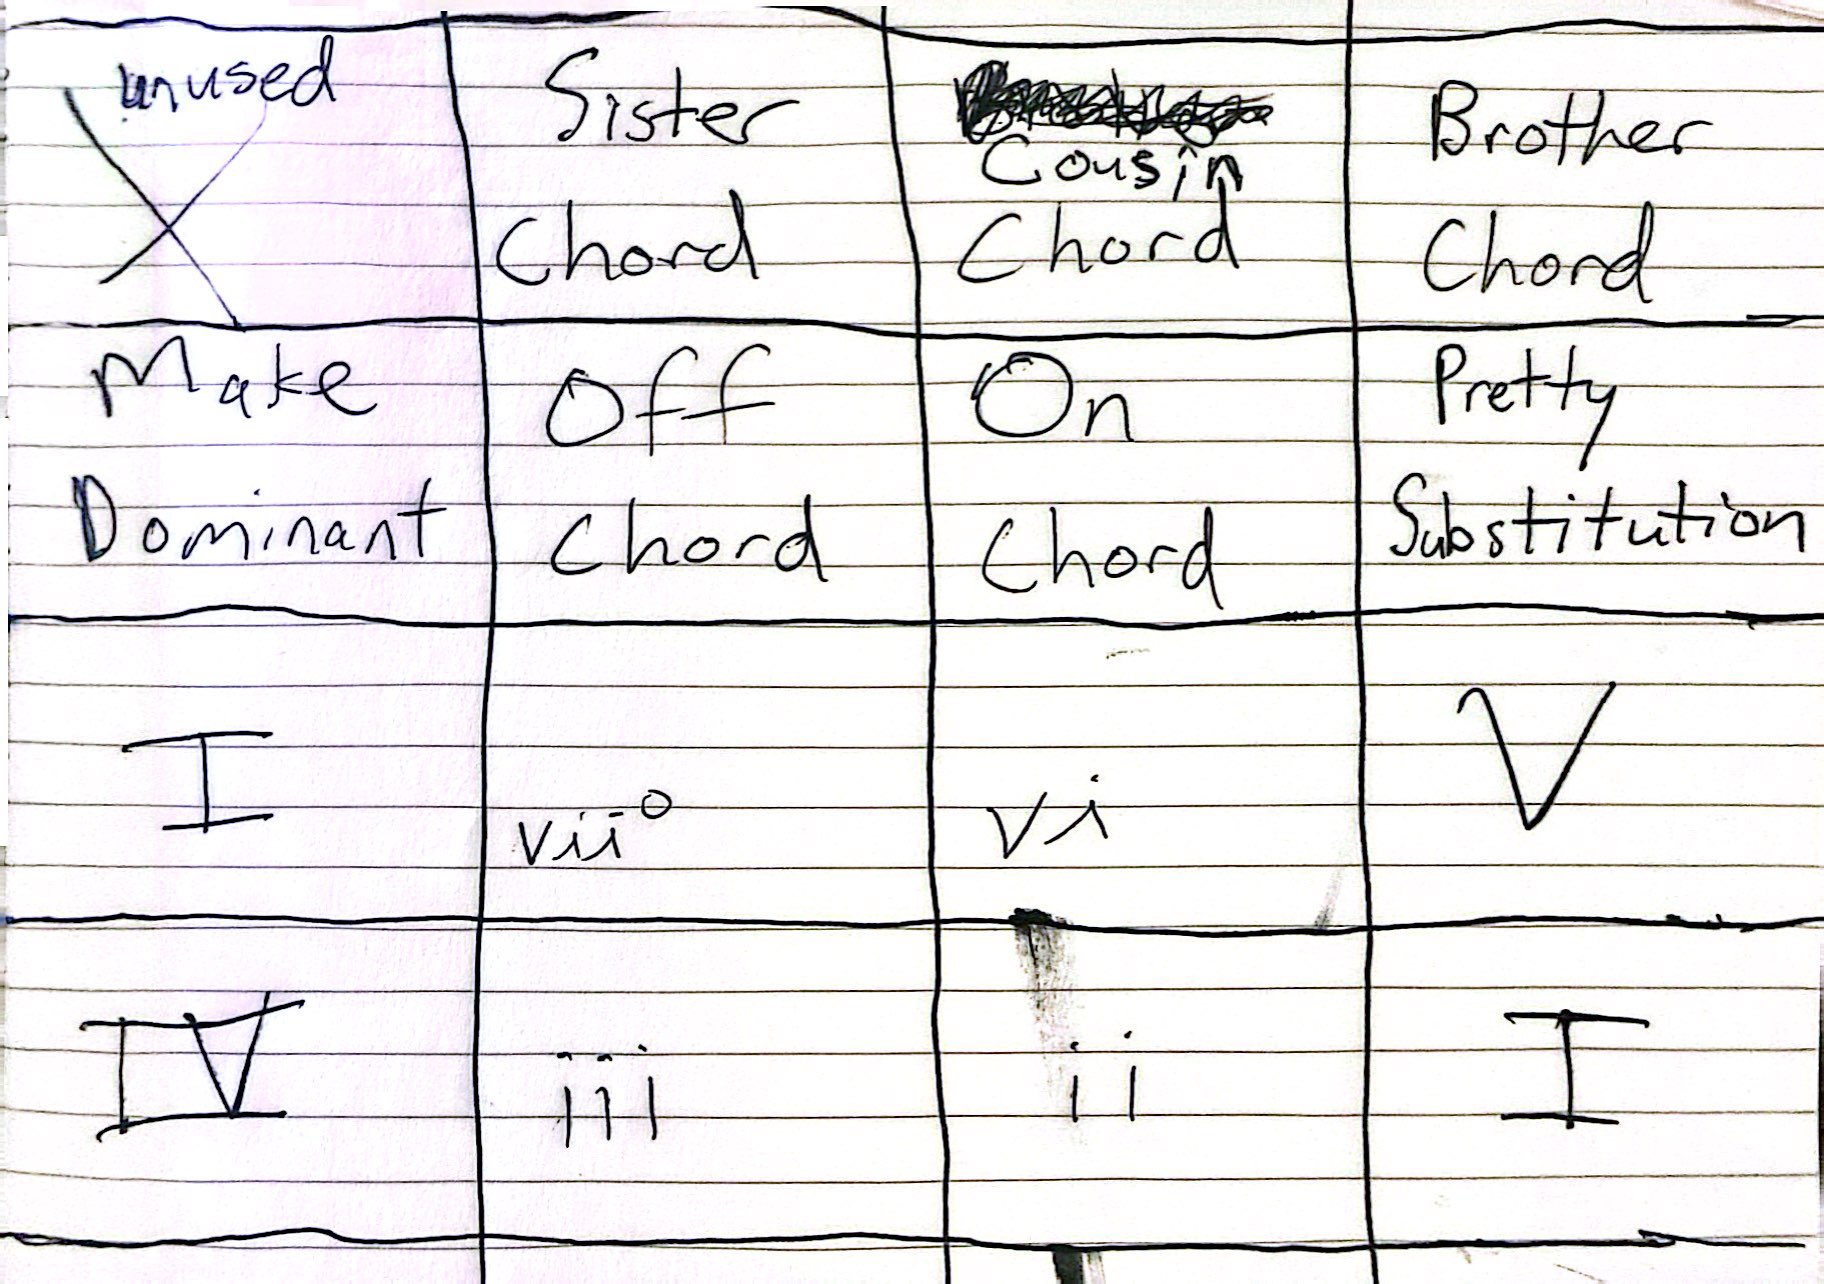 unused
Sister
Chord
Cousin
Chord
Brother
Chord
Make
Dominant
Off
Chord
On
Chord
Pretty
Substitution
I
vii°
vi
V
IV
iii
ii
I